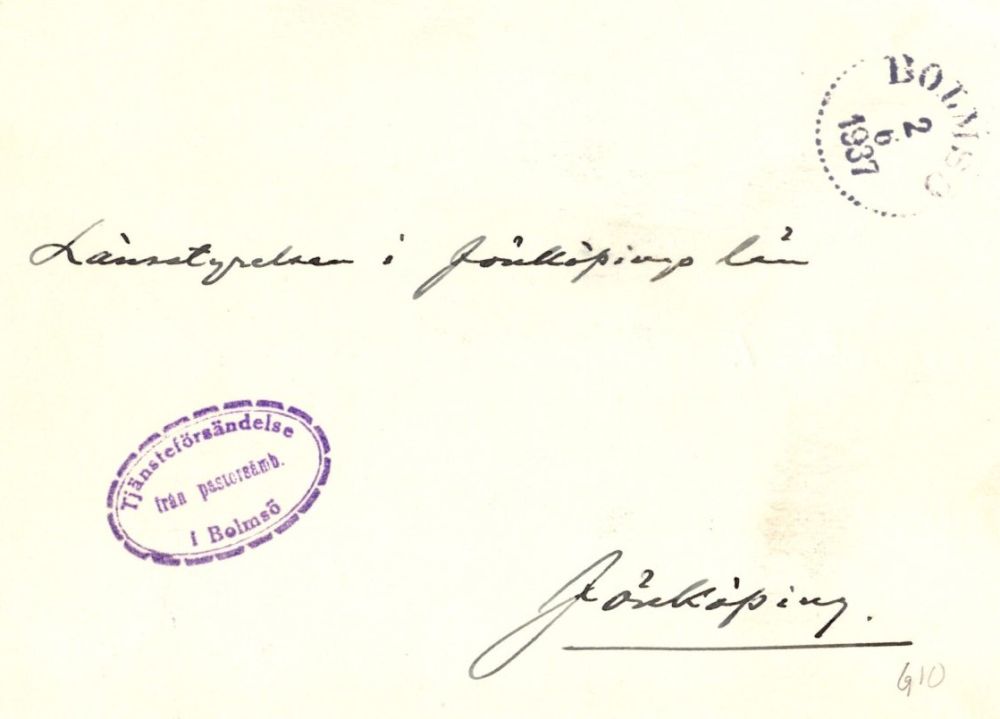 BOLMSÖ
2
6
1937
Länsstyrelsen i Jönköpings län
Tjänsteförsändelse
från pastorsämb.
i Bolmsö
Jönköping.
G10